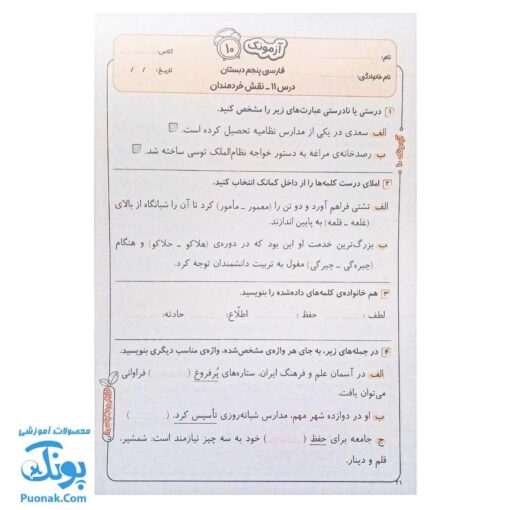 آزمونک ۱۰
نام:
کلاس:
نام خانوادگی:
تاریخ: / /
فارسی پنجم دبستان
درس ۱۱ ـ نقش خردمندان
۱ درستی یا نادرستی عبارت‌های زیر را مشخص کنید.
الف سعدی در یکی از مدارس نظامیه تحصیل کرده است.
ب رصدخانه‌ی مراغه به دستور خواجه نظام‌الملک توسی ساخته شد.
۲ املای درست کلمه‌ها را از داخل کمانک انتخاب کنید.
الف تشتی فراهم آورد و دو تن را (معمور ـ مأمور) کرد تا آن را شبانگاه از بالای
(غلعه ـ قلعه) به پایین اندازند.
ب بزرگ‌ترین خدمت او این بود که در دوره‌ی (هلاکو ـ حلاکو) و هنگام
(چیره‌گی ـ چیرگی) مغول به تربیت دانشمندان توجه کرد.
۳ هم خانواده‌ی کلمه‌های داده‌شده را بنویسید.
لطف: حفظ: اطلّاع: حادثه:
۴ در جمله‌های زیر، به جای هر واژه‌ی مشخص‌شده، واژه‌ی مناسب دیگری بنویسید.
الف در آسمان علم و فرهنگ ایران، ستاره‌های پُرفروغ ( ) فراوانی
می‌توان یافت.
ب او در دوازده شهر مهم، مدارس شبانه‌روزی تأسیس کرد. ( )
ج جامعه برای حفظ ( ) خود به سه چیز نیازمند است: شمشیر،
قلم و دینار.
۲۱
محصولات آموزشی
پونک
Puonak.Com